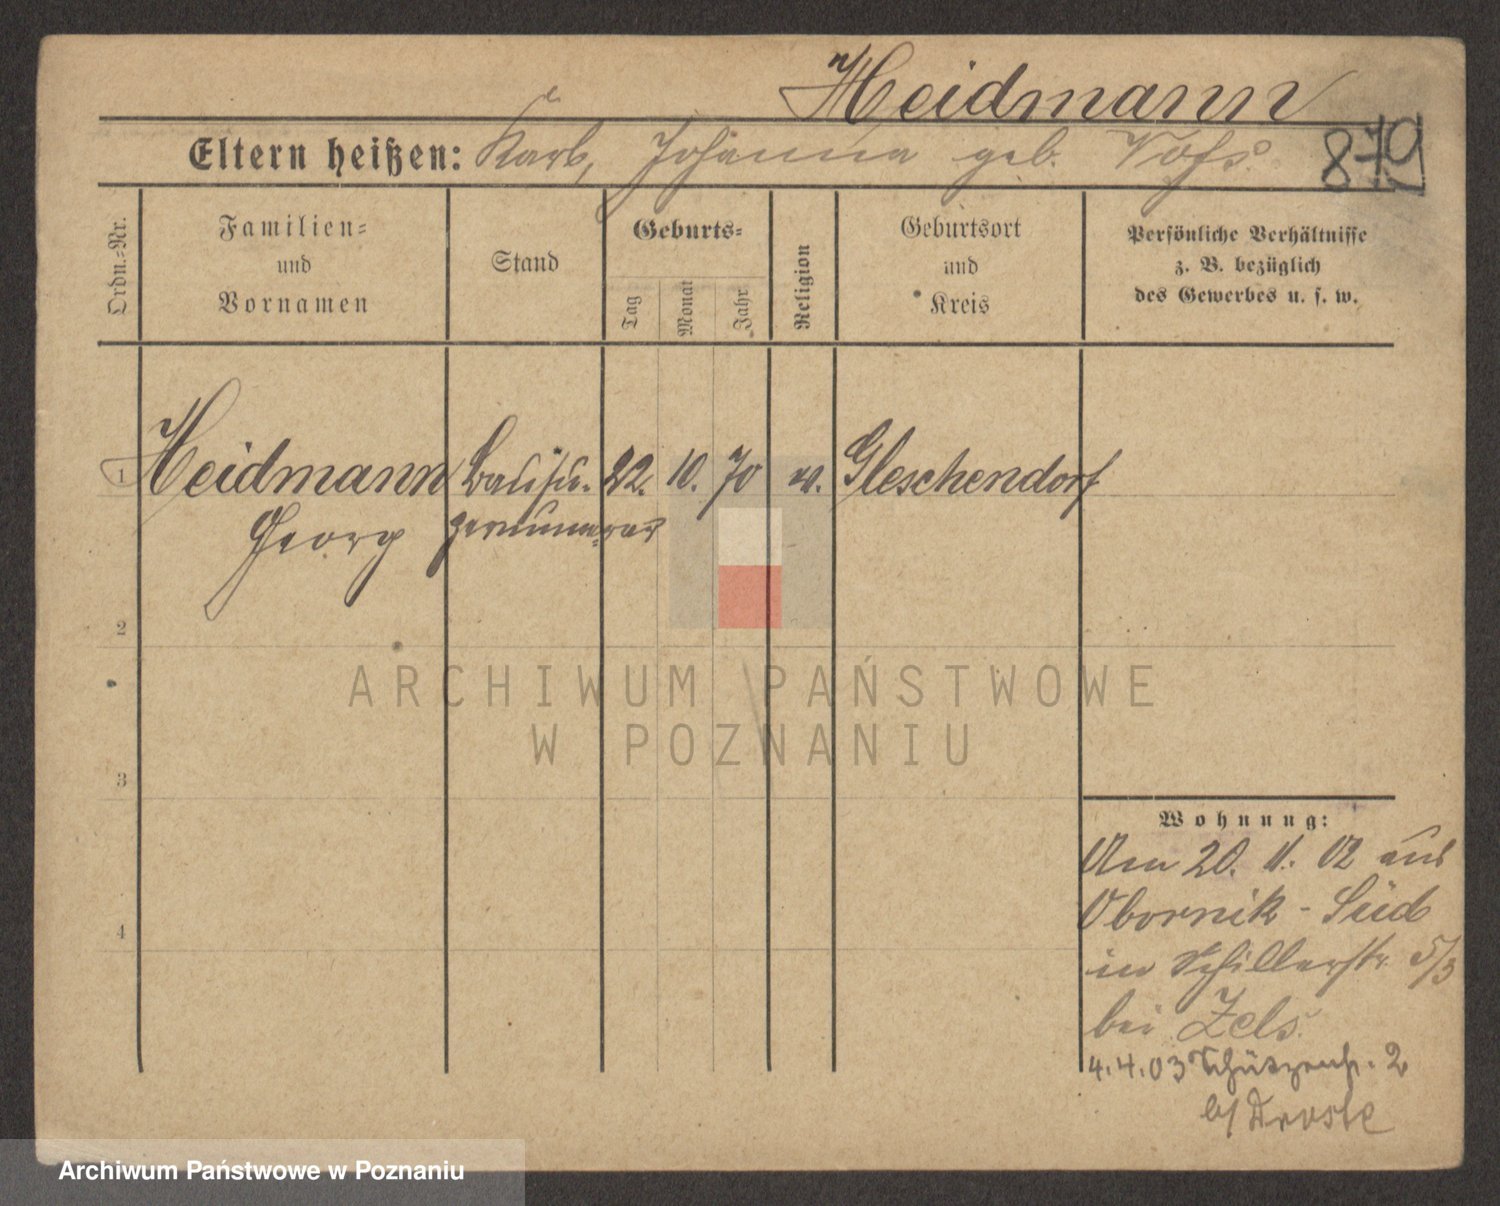 Heidmann
Eltern heißen: Karl, Johanna geb. Voß.
879
Ordn.-Nr.
Familien-
und
Vornamen
Stand
Geburts-
Tag
Monat
Jahr
Religion
Geburtsort
und
Kreis
Persönliche Verhältnisse
z. B. bezüglich
des Gewerbes u. s. w.
1 Heidmann 22. 10. 70 ev. Gleschendorf
Georg
2
3
4
ARCHIWUM PAŃSTWOWE
W POZNANIU
Wohnung:
Am 20. 11. 02 aus
Obornik - Süd
in Schillerstr. 5/3
bei Zels.
4.4.03 Schützenstr. 2
b/ Droste
Archiwum Państwowe w Poznaniu